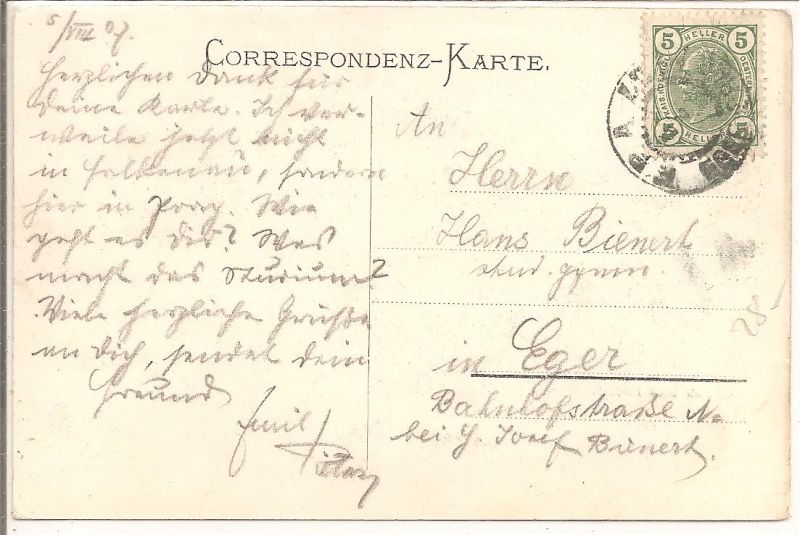 5/VIII 07.
CORRESPONDENZ-KARTE.
Herzlichen Dank für
deine Karte. Ich ver-
weile jetzt nicht
in Falkenau, sondern
hier in Prag. Wie
geht es dir? Was
macht das Studium?
Viele herzliche Grüße
an dich, sendet dein
Freund
Emil
An
Herrn
Hans Bienert
stud. gymn.
in Eger
Bahnhofstraße N.
bei H. Josef Bienert.
5 HELLER 5
5 HELLER 5
28